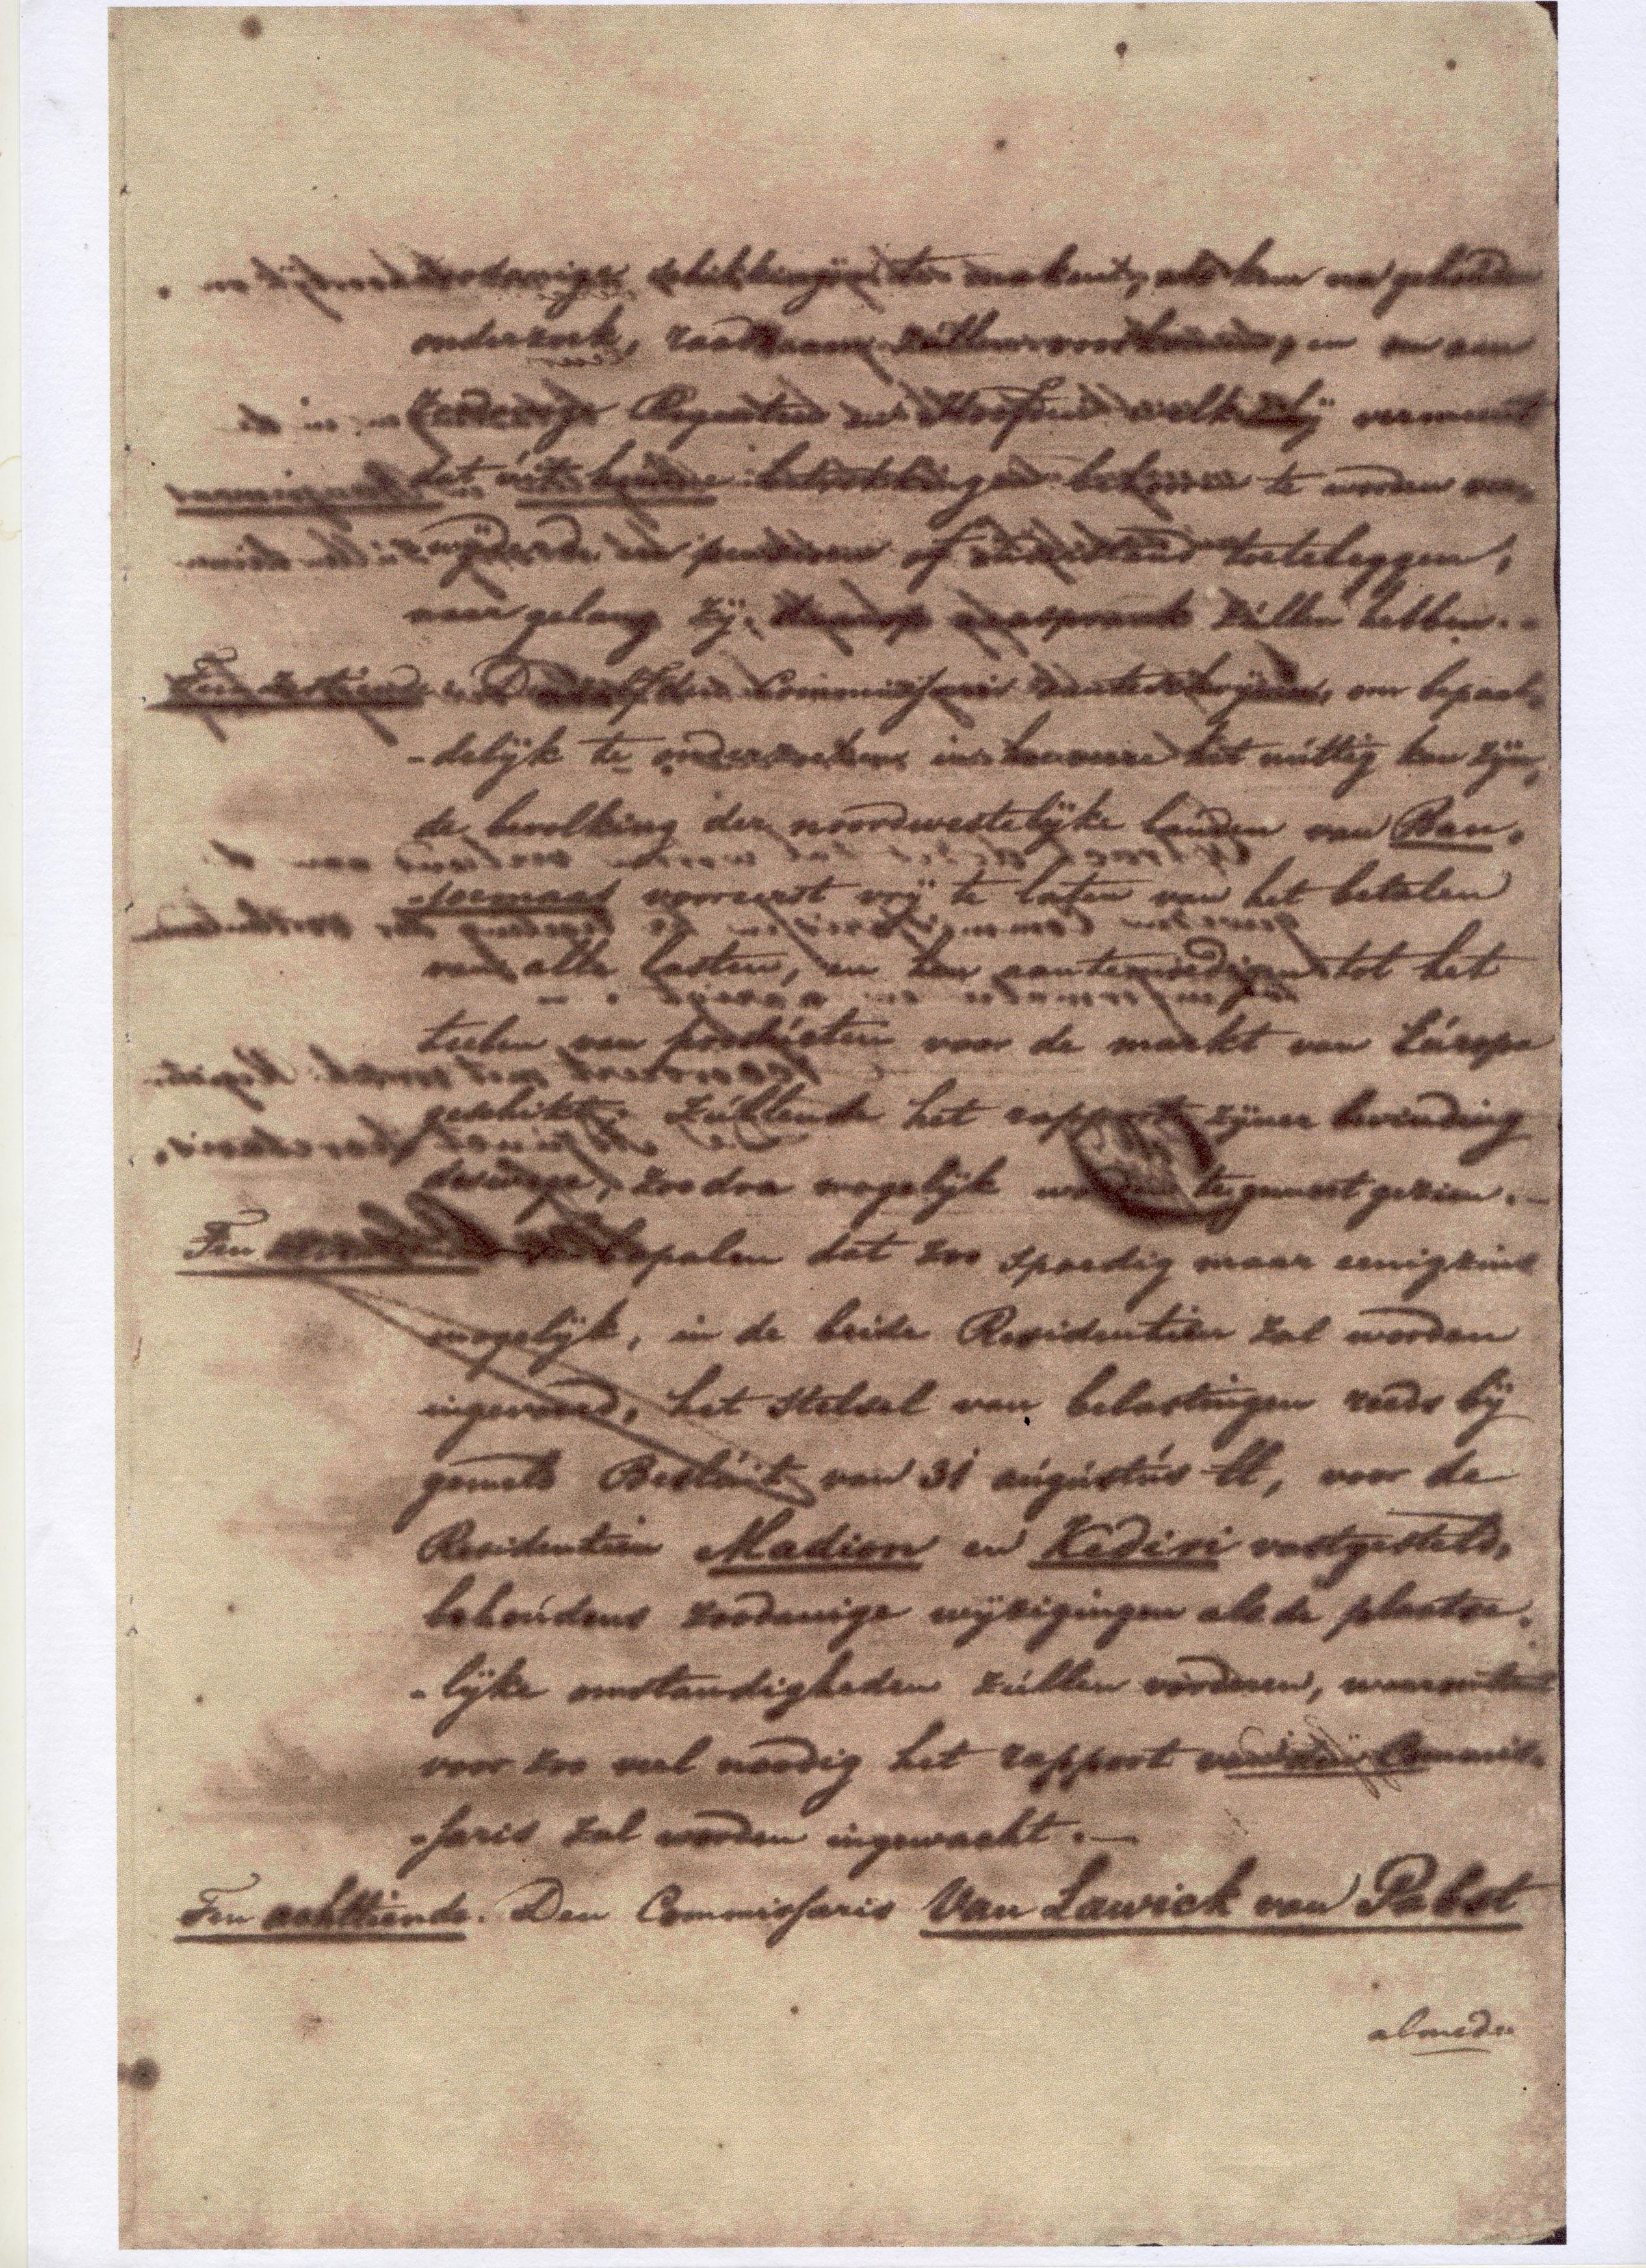 zoodanige schikkingen te maken, als hem na gehouden
onderzoek, raadzaam zullen voorkomen, en om aan
zoodanige Regenten en Hoofden welke hij vermeent
dat uit hunne betrekkingen behooren te worden ver-
wijderd een pensioen of onderstand toeteleggen,
naar gelang zij daarop aanspraak zullen hebben. -
Ten zestiende. Den Commissaris aanteschrijven, om bepaal-
-delijk te onderzoeken in hoeverre het nuttig kan zijn,
de bevolking der noordwestelijke landen van Ban-
-joemaas vooreerst vrij te laten van het betalen
van alle lasten, en hen aantemoedigen tot het
teelen van producten voor de markt van Europa
geschikt. Zullende het rapport zijner bevinding
deswege, zoodra mogelijk worden tegemoet gezien. -
Ten bepalen dat zoo spoedig maar eenigzins
mogelijk, in de beide Residentien zal worden
ingevoerd, het stelsel van belastingen reeds bij
gemeld Besluit van 31 augustus ll, voor de
Residentien Madion en Kediri vastgesteld,
behoudens zoodanige wijzigingen als de plaatse-
-lijke omstandigheden zullen vorderen, waaromtrent
voor zoo veel noodig het rapport van den Commis-
-saris zal worden ingewacht. -
Ten achttiende. Den Commissaris Van Lawick van Pabst
almede